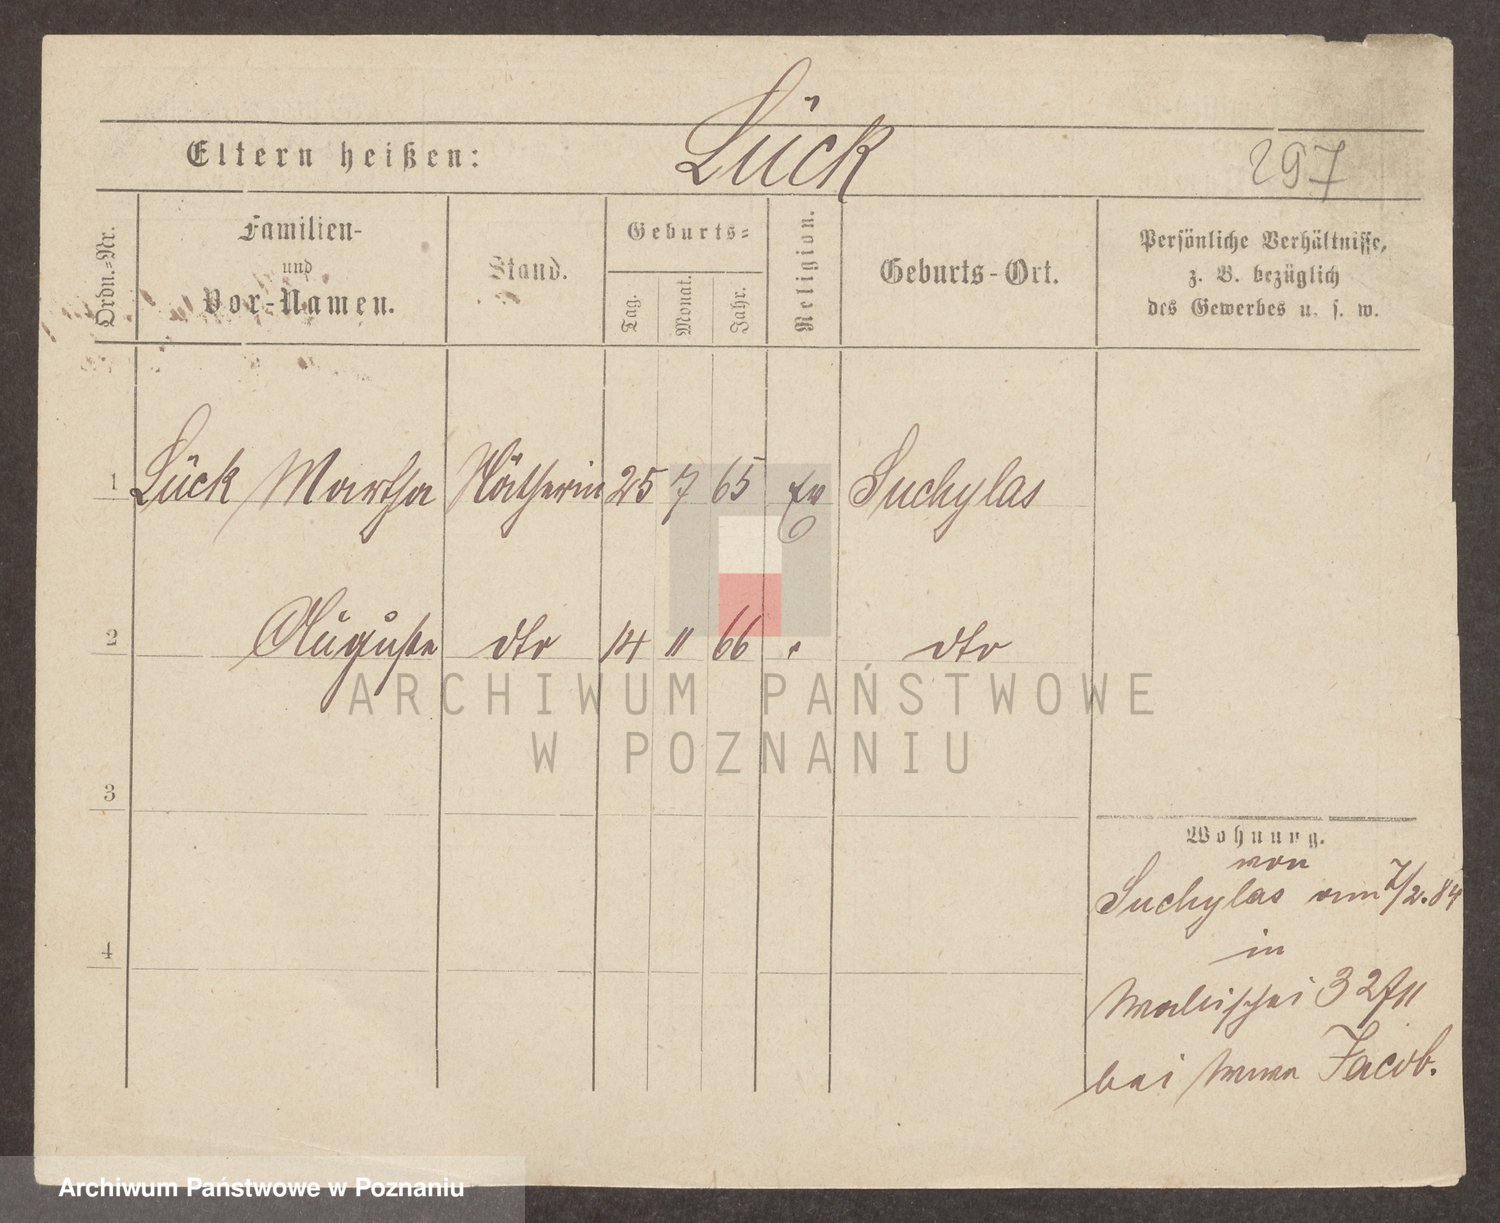 Eltern heißen: Lück 297
Ordn.-Nr.
Familien-
und
Vor-Namen.
Stand.
Geburts-
Tag.
Monat.
Jahr.
Religion.
Geburts-Ort.
Persönliche Verhältnisse,
z. B. bezüglich
des Gewerbes u. s. w.
1 Lück Martha Nätherin 25 7 65 Ev Suchylas
2 Auguste dto 14 11 66 " dto
ARCHIWUM PAŃSTWOWE
W POZNANIU
3
4
Wohnung.
von
Suchylas am 7/2. 84
in
Walischei 32
bei Wwe Jacob.
Archiwum Państwowe w Poznaniu